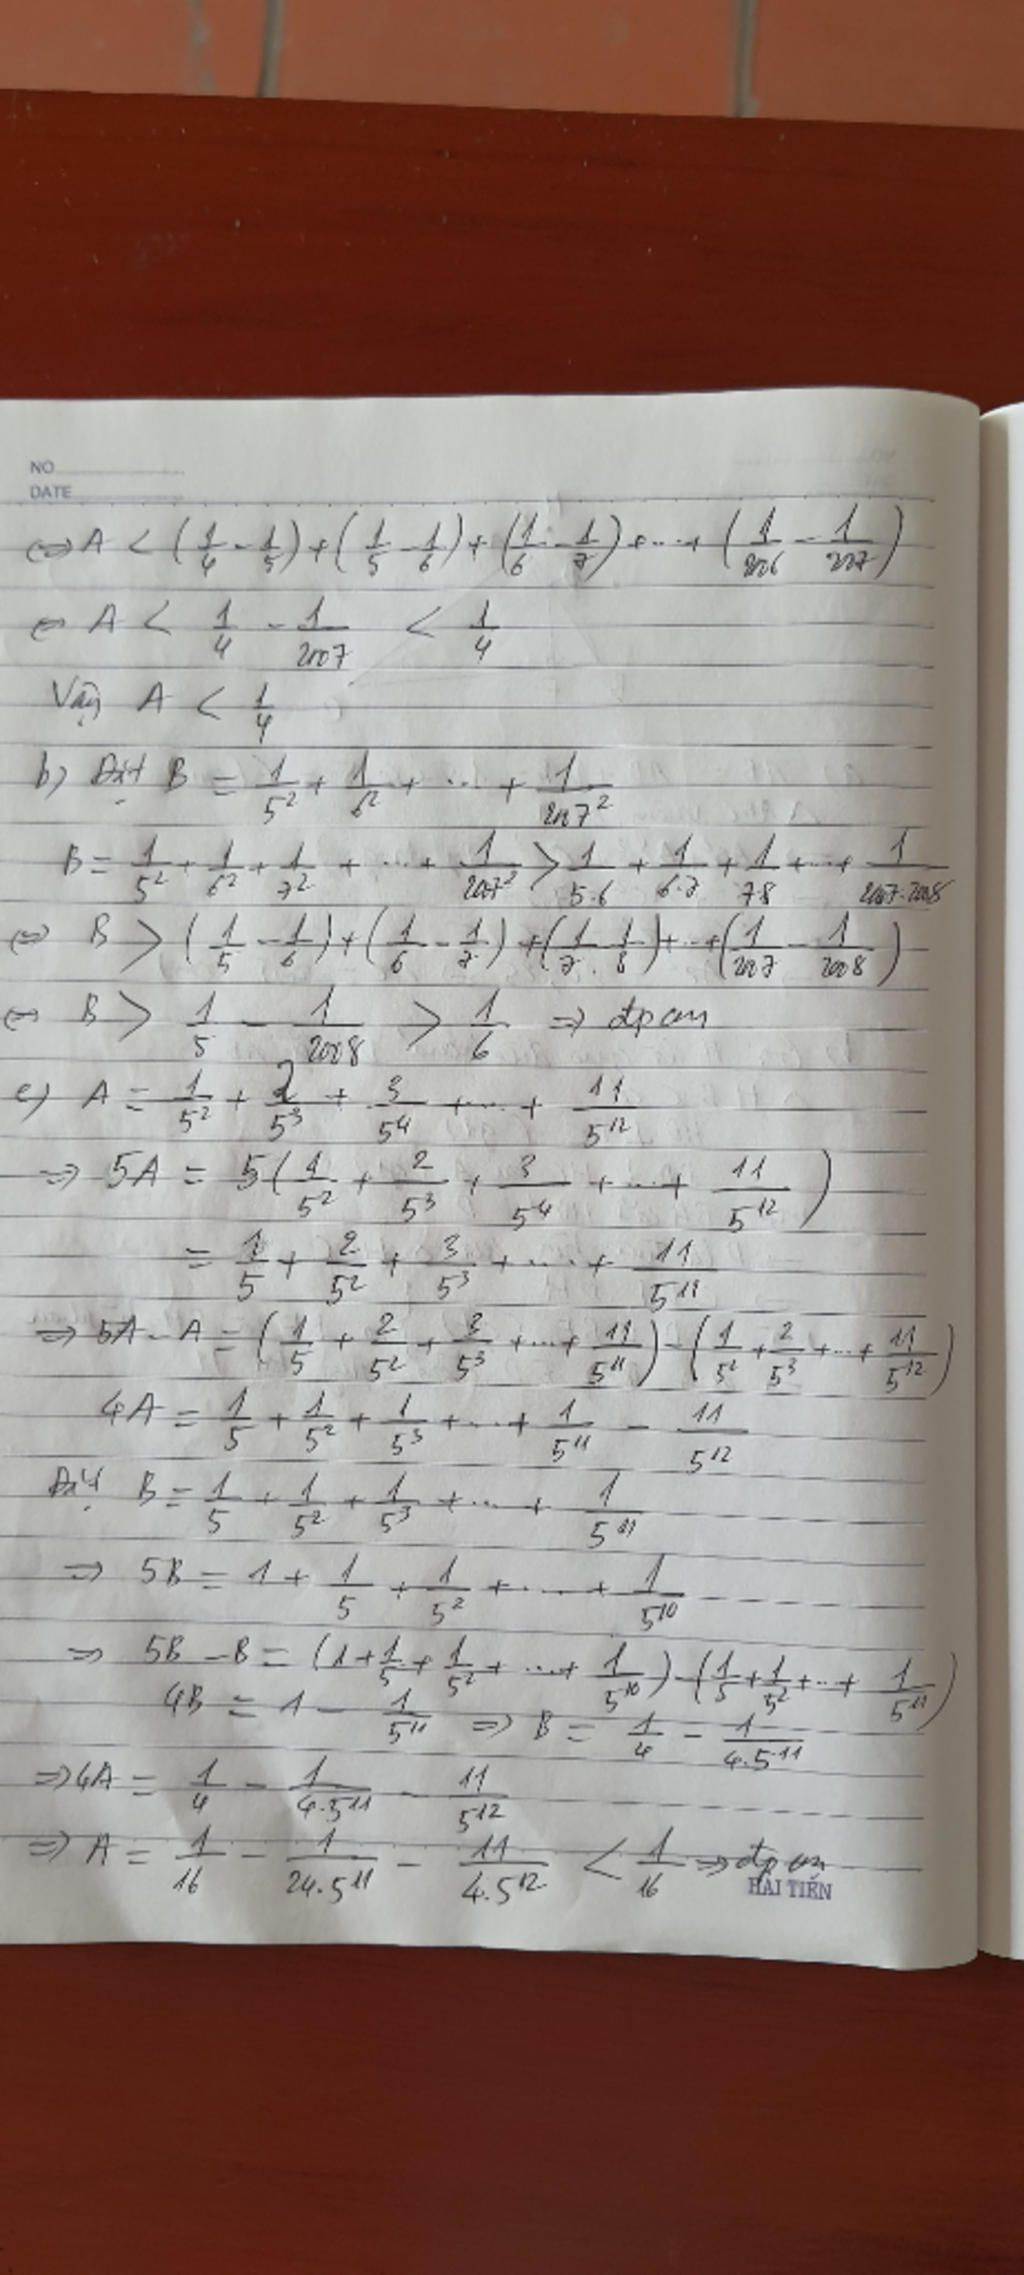 NO
DATE
⇔ A < (1/4 - 1/5) + (1/5 - 1/6) + (1/6 - 1/7) + ... + (1/2006 - 1/2007)
⇔ A < 1/4 - 1/2007 < 1/4
Vậy A < 1/4
b) Đặt B = 1/5² + 1/6² + ... + 1/2007²
B = 1/5² + 1/6² + 1/7² + ... + 1/2007² > 1/5.6 + 1/6.7 + 1/7.8 + ... + 1/2007.2008
⇔ B > (1/5 - 1/6) + (1/6 - 1/7) + (1/7 - 1/8) + ... + (1/2007 - 1/2008)
⇔ B > 1/5 - 1/2008 > 1/6 ⇒ đpcm
c) A = 1/5² + 2/5³ + 3/5⁴ + ... + 11/5¹²
⇒ 5A = 5(1/5² + 2/5³ + 3/5⁴ + ... + 11/5¹²)
= 1/5 + 2/5² + 3/5³ + ... + 11/5¹¹
⇒ 5A - A = (1/5 + 2/5² + 3/5³ + ... + 11/5¹¹) - (1/5² + 2/5³ + ... + 11/5¹²)
4A = 1/5 + 1/5² + 1/5³ + ... + 1/5¹¹ - 11/5¹²
Đặt B = 1/5 + 1/5² + 1/5³ + ... + 1/5¹¹
⇒ 5B = 1 + 1/5 + 1/5² + ... + 1/5¹⁰
⇒ 5B - B = (1 + 1/5 + 1/5² + ... + 1/5¹⁰) - (1/5 + 1/5² + ... + 1/5¹¹)
4B = 1 - 1/5¹¹ ⇒ B = 1/4 - 1/4.5¹¹
⇒ 4A = 1/4 - 1/4.5¹¹ - 11/5¹²
⇒ A = 1/16 - 1/24.5¹¹ - 11/4.5¹² < 1/16 ⇒ đpcm
HẢI TIẾN